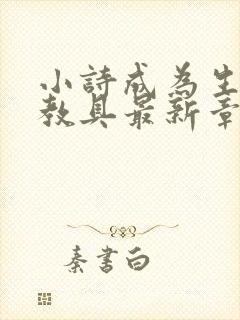 小詩成為生
教具最新章
秦書白